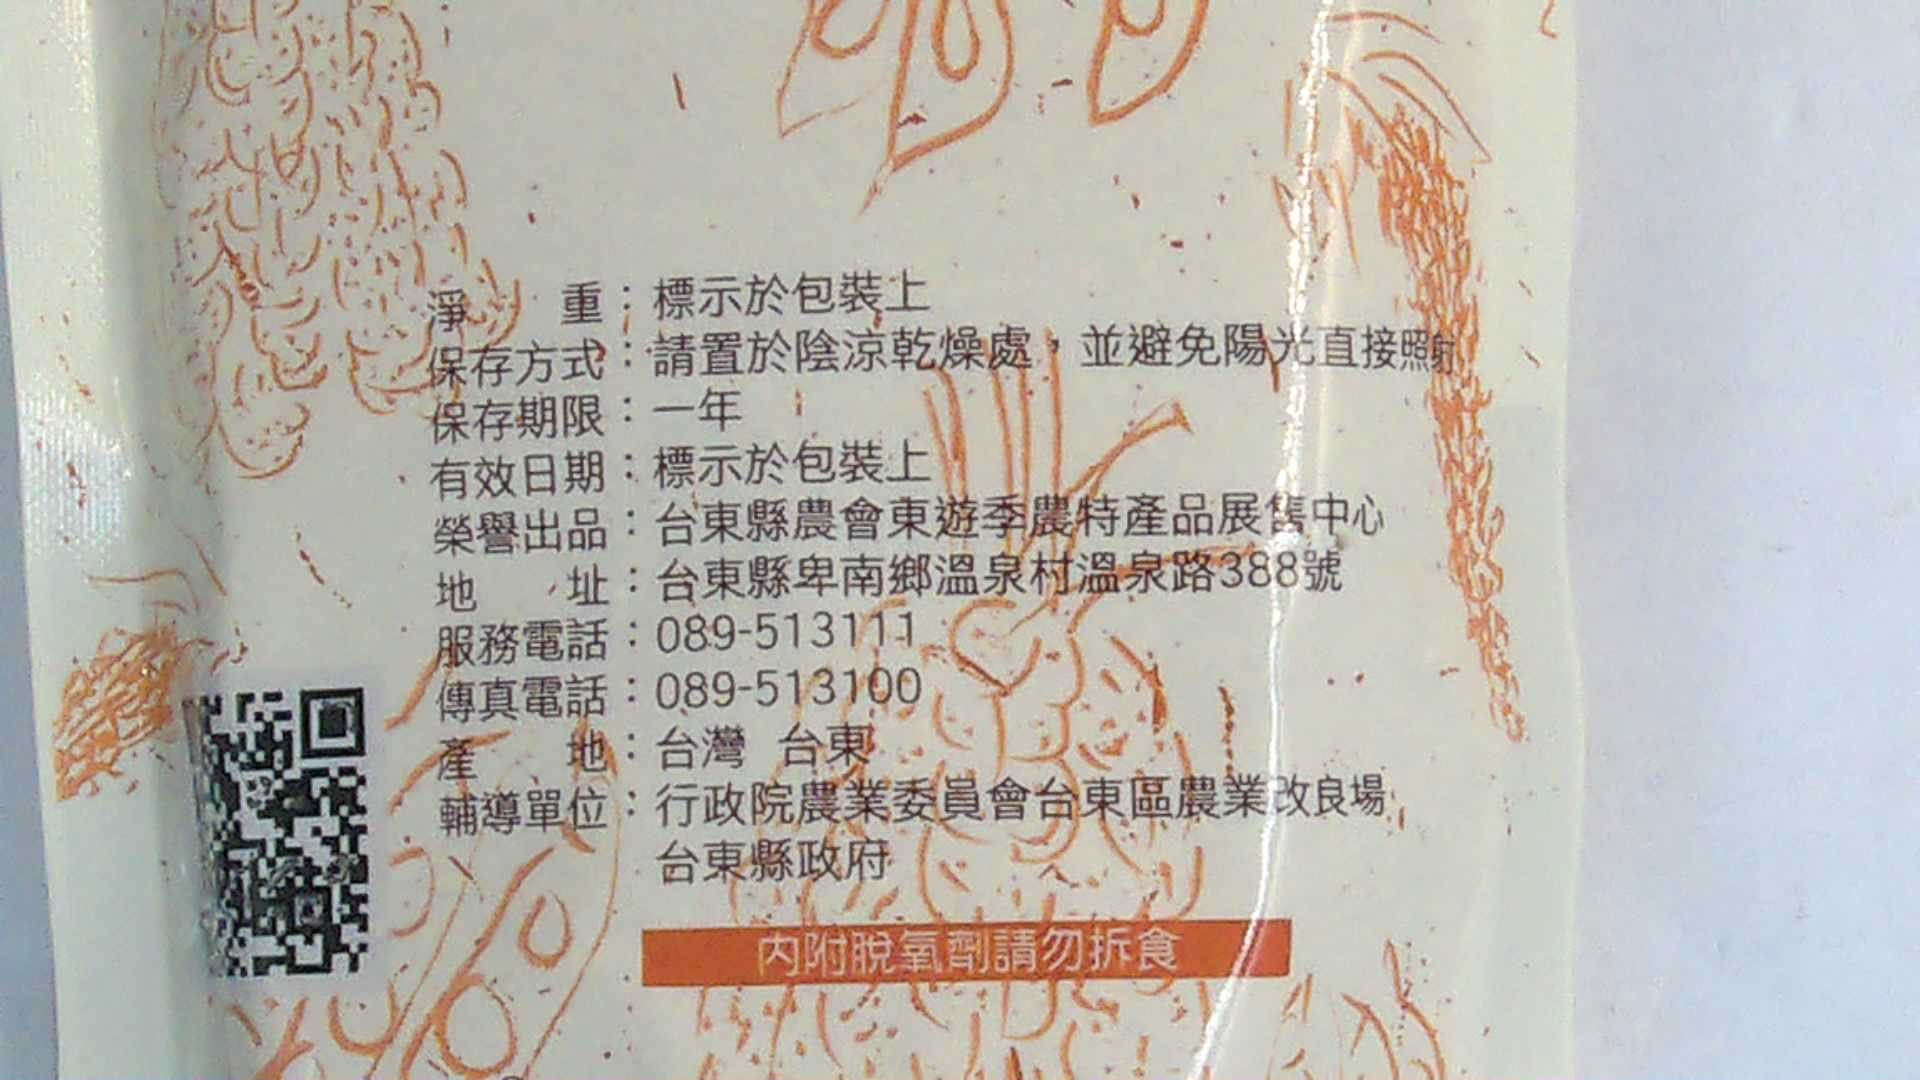 淨　　重：標示於包裝上
保存方式：請置於陰涼乾燥處，並避免陽光直接照射
保存期限：一年
有效日期：標示於包裝上
榮譽出品：台東縣農會東遊季農特產品展售中心
地　　址：台東縣卑南鄉溫泉村溫泉路388號
服務電話：089-513111
傳真電話：089-513100
產　　地：台灣 台東
輔導單位：行政院農業委員會台東區農業改良場
台東縣政府
內附脫氧劑請勿拆食